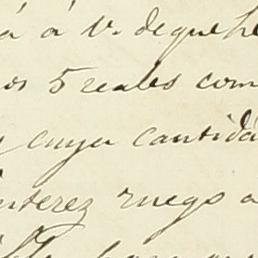 á á V. de que he
os 5 reales com
cuya cantida
interez ruego a